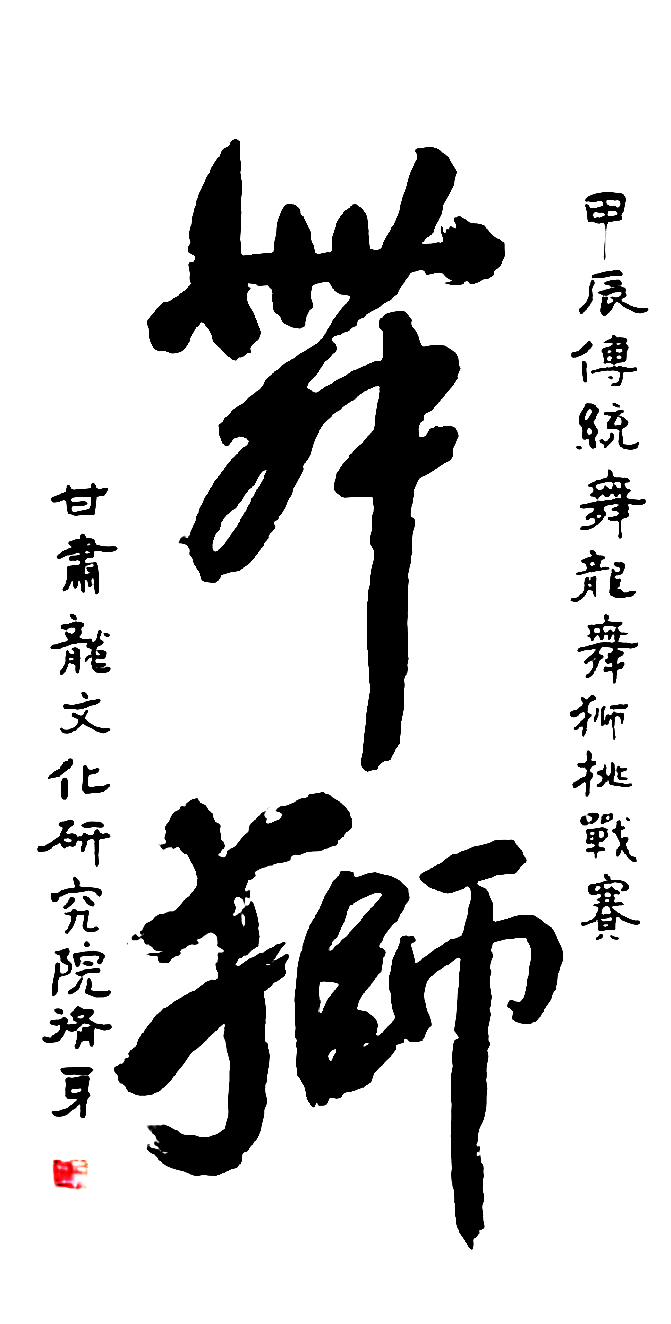 甲辰傳統舞龍舞狮挑戰賽
舞獅
甘肅龍文化研究院脩身